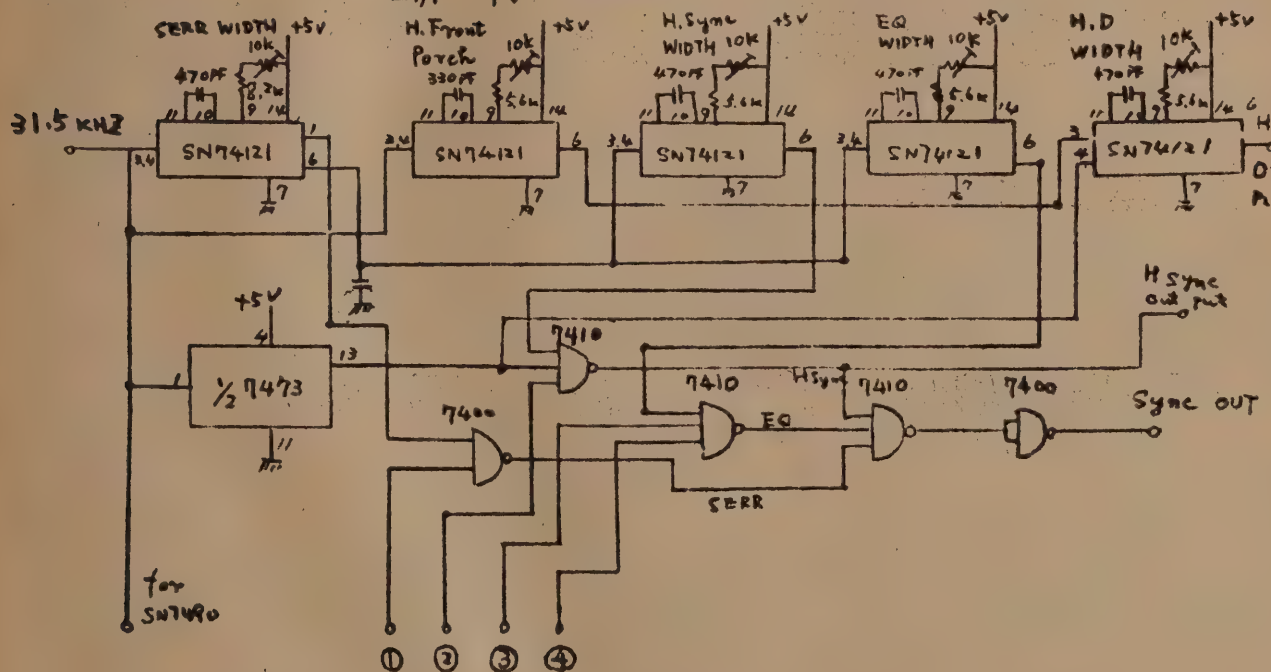 SERR WIDTH
+5V
10K
470PF
8.2K
11
10
9
14
SN74121
3,4
1
6
7
31.5 KHZ
H. Front
Porch
330PF
10K
+5V
5.6K
11
10
9
14
3,4
SN74121
6
7
H. Sync
WIDTH
10K
+5V
470PF
5.6K
11
10
9
14
3.4
SN74121
6
7
EQ
WIDTH
10K
+5V
470PF
5.6K
11
10
9
14
3.4
SN74121
6
7
H.D
WIDTH
10K
+5V
470PF
5.6K
11
10
9
14
3
4
SN74121
6
7
H
O
+5V
4
1
1/2 7473
13
11
7400
7410
7410
EQ
H Sync
7410
7400
H Sync
out put
Sync OUT
SERR
for
SN7490
① ② ③ ④